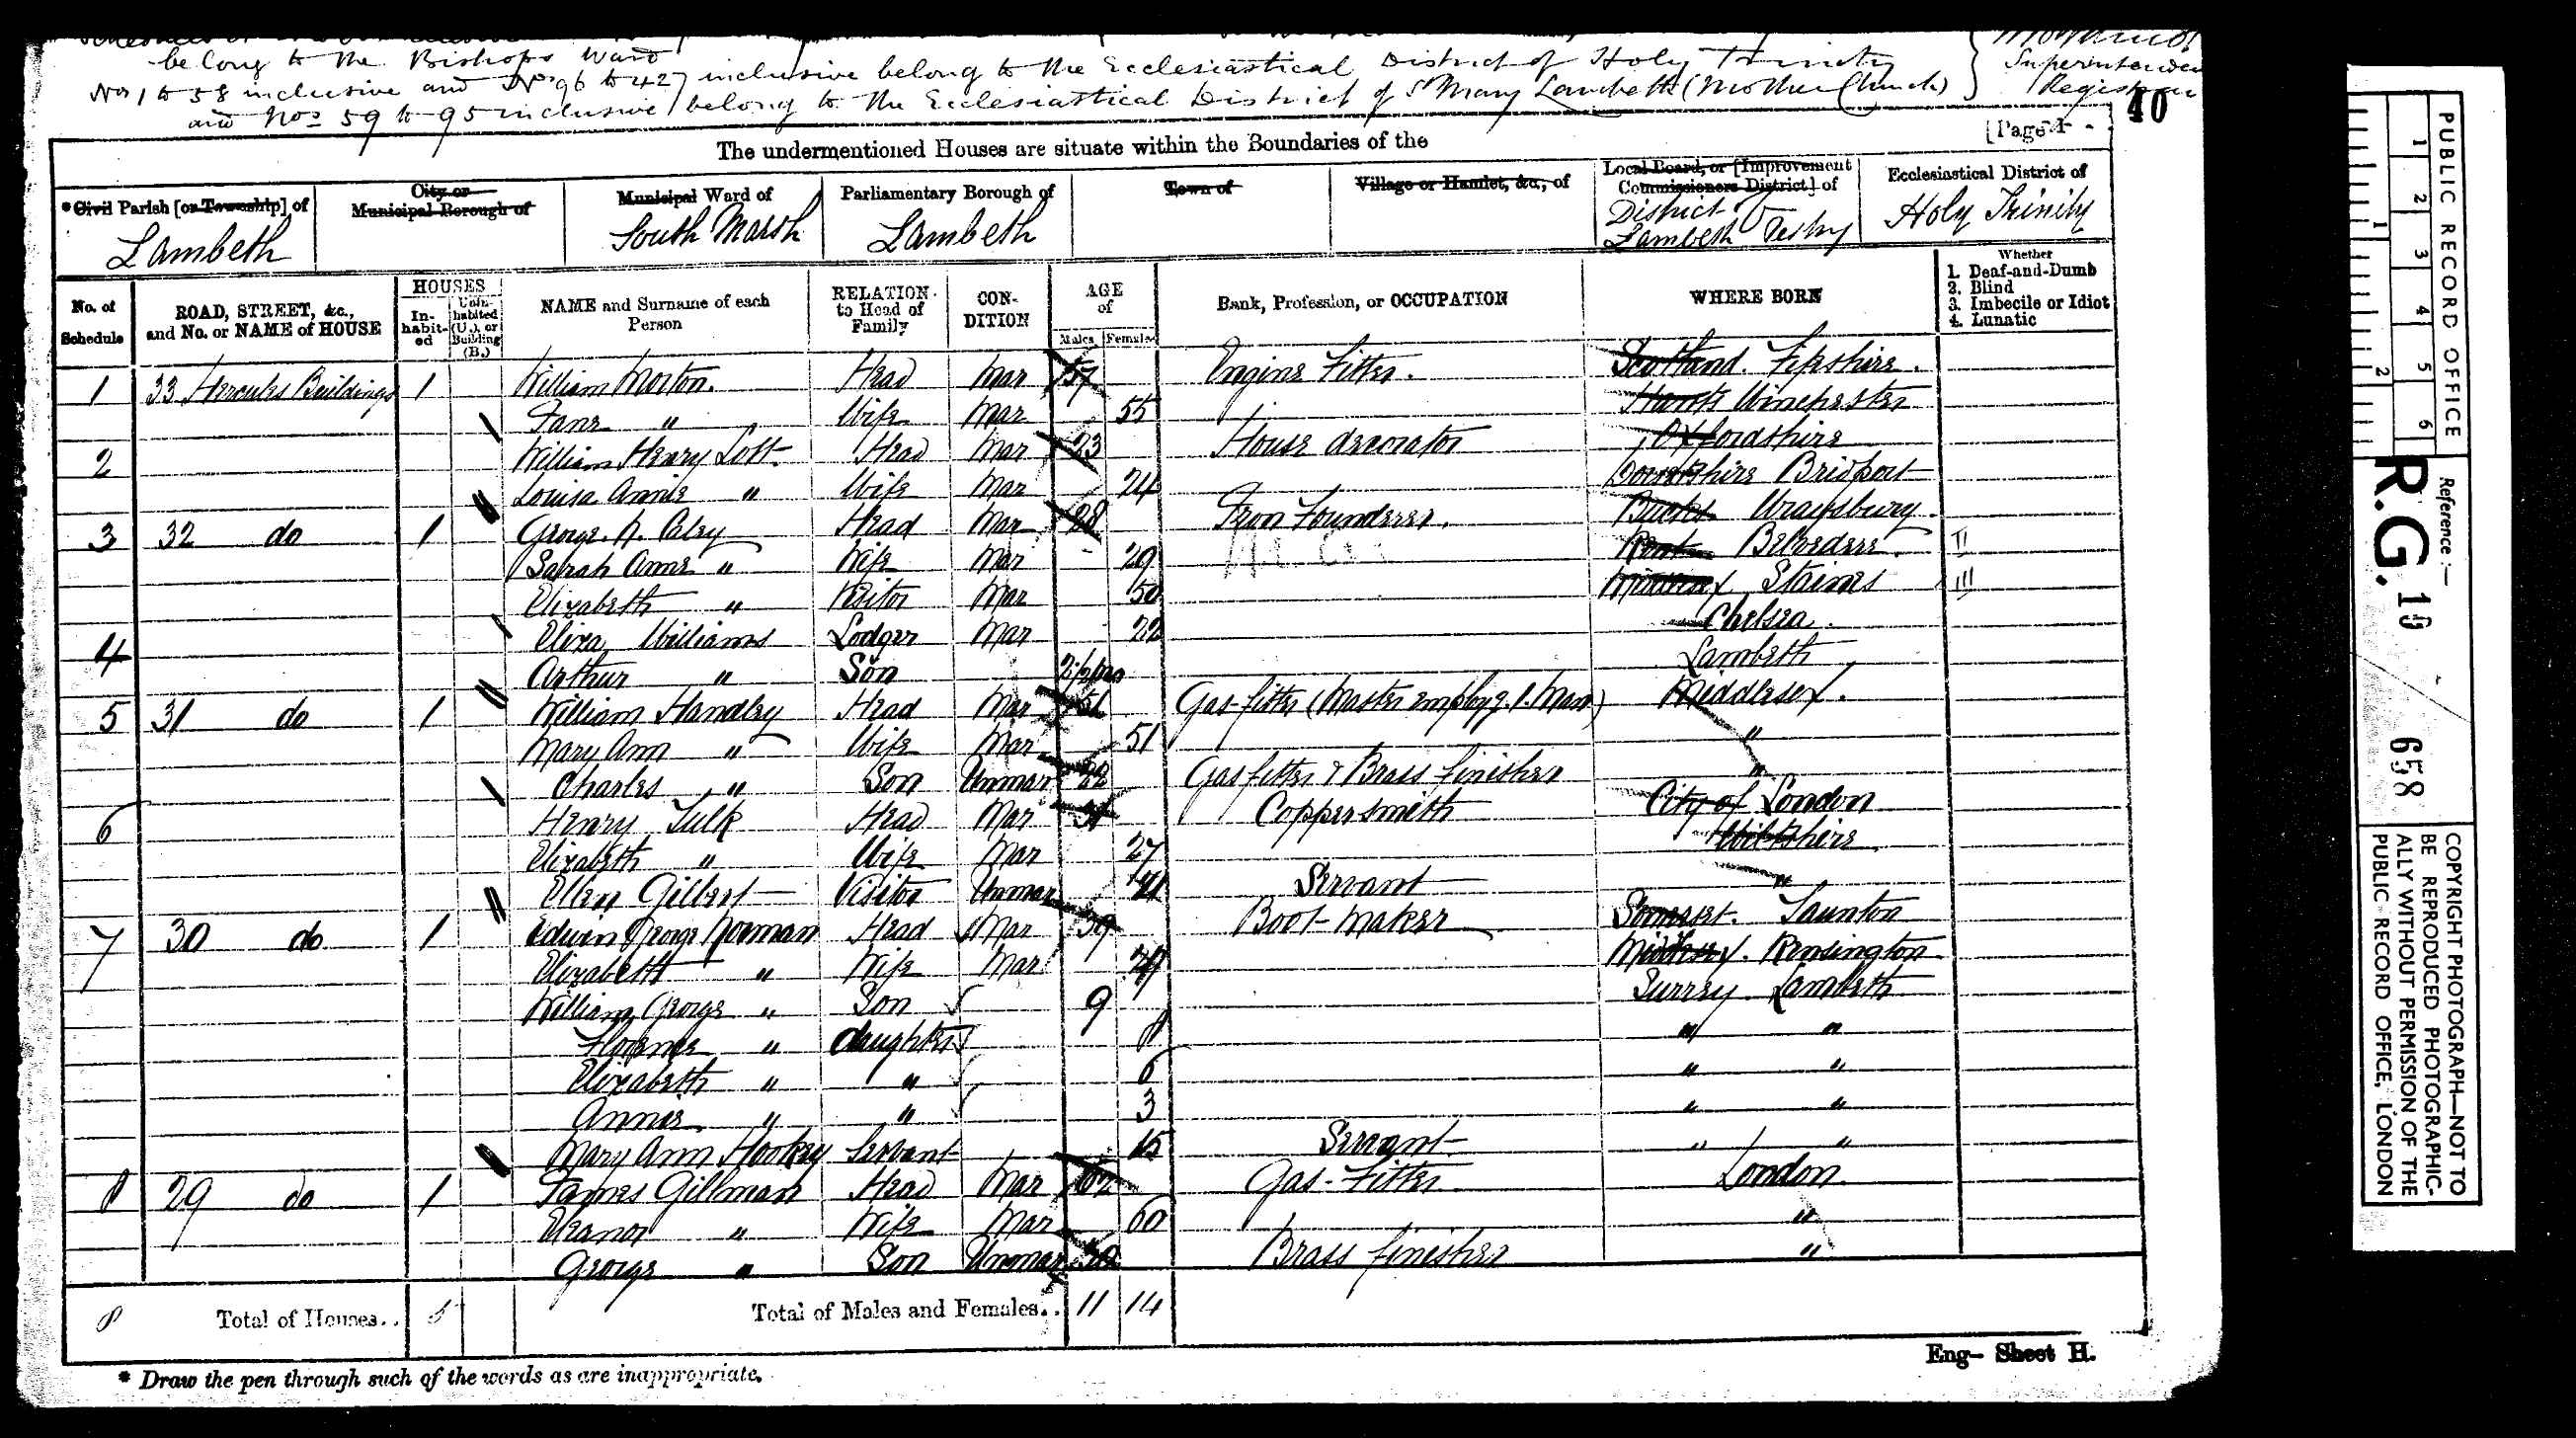 belong to the Bishops Ward
Nos 1 to 58 inclusive and Nos 96 to 427 inclusive belong to the Ecclesiastical District of Holy Trinity
and Nos 59 to 95 inclusive belong to the Ecclesiastical District of St Mary Lambeth (Mother Church)
Superintendent
Registrar
40
[Page 1
The undermentioned Houses are situate within the Boundaries of the
*Civil Parish [or Township] of
City or Municipal Borough of
Municipal Ward of
Parliamentary Borough of
Town of
Village or Hamlet, &c., of
Local Board, or [Improvement Commissioners District] of
Ecclesiastical District of
Lambeth
South Marsh
Lambeth
District
Lambeth Vestry
Holy Trinity
No. of Schedule
ROAD, STREET, &c., and No. or NAME of HOUSE
HOUSES
In-habit-ed
Unin-habited (U.), or Building (B.)
NAME and Surname of each Person
RELATION to Head of Family
CON-DITION
AGE of
Males
Females
Rank, Profession, or OCCUPATION
WHERE BORN
Whether
1. Deaf-and-Dumb
2. Blind
3. Imbecile or Idiot
4. Lunatic
1 33 Hercules Buildings 1 William Morton. Head Mar 57 Engine Fitter. Scotland. Fifeshire.
Jane " Wife Mar 55 Hants Winchester
2 William Henry Lott. Head Mar 23 House decorator Oxfordshire
Louisa Annie " Wife Mar 24 Dorsetshire Bridport
3 32 do 1 George. Head Mar 28 Iron Founderer. Bucks. Wraysbury.
Sarah Anne " Wife Mar 29 Kent Belvedere. II
Elizabeth " Visitor Mar 50 Middlesex Staines III
4 Eliza Williams Lodger Mar 22 Chelsea.
Arthur " Son Lambeth
5 31 do 1 William Handley Head Mar 51 Gas-fitter (Master employg. 1. Man) Middlesex.
Mary Ann " Wife Mar 51 "
Charles " Son Unmar 22 Gasfitter & Brass finisher "
6 Henry Tulk Head Mar 31 Coppersmith City of London
Elizabeth " Wife Mar 27 Wiltshire.
Ellen Gilbert Visitor Unmar Servant "
7 30 do 1 Edwin George Norman Head Mar 39 Boot-maker Somerset. Taunton
Elizabeth " Wife Mar Middlesex. Kensington
William George " Son 9 Surrey Lambeth
Florence " daughter 8 " "
Elizabeth " " 6 " "
Annie " " 3 " "
Mary Ann Hookey Servant 15 Servant " "
8 29 do 1 James Gillman Head Mar 62 Gas-Fitter London
Eleanor " Wife Mar 60 "
George " Son Unmar 30 Brass finisher "
8 Total of Houses.. 5 Total of Males and Females.. 11 14
* Draw the pen through such of the words as are inappropriate.
Eng— Sheet H.
PUBLIC RECORD OFFICE
1 2 3 4 5 6
1 2
Reference :—
R.G. 10 658
COPYRIGHT PHOTOGRAPH—NOT TO
BE REPRODUCED PHOTOGRAPHIC-
ALLY WITHOUT PERMISSION OF THE
PUBLIC RECORD OFFICE, LONDON